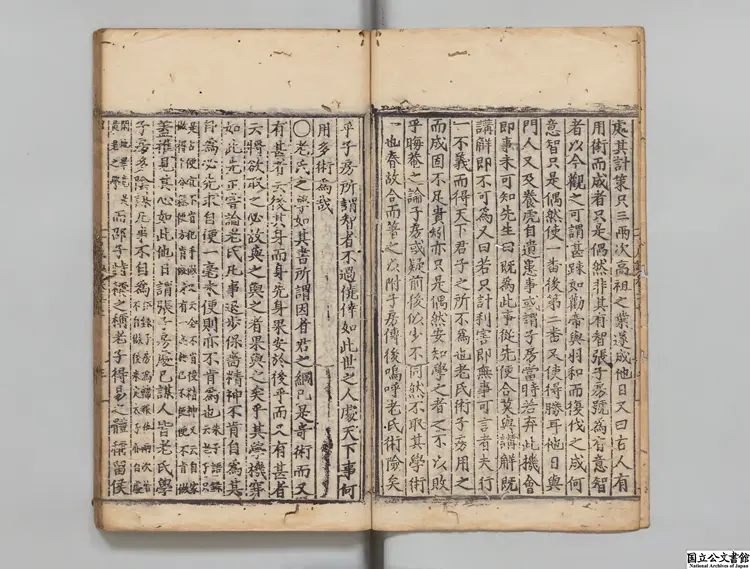 處其計策只三兩次高祖之業遂成他日又曰古人有
用術而成者只是偶然非其有智張子房號為有意智
者以今觀之可謂甚踈如勸帝與羽和而復伐之成何
意智只是偶然使一番後第二番又使得勝耳他日與
門人又及養虎自遺患事或謂子房當時若弃此機會
即事未可知先生曰既為此事從先便合莫與講解既
講解即不可為又曰若只計利害即無事可言者夫行
一不義而得天下君子之所不為也老氏術子房用之
而成固不足貴紛亦只是偶然安知學之者之不以敗
乎晦菴之論子房或疑前後似少不同然不取其學術
一也春故合而著之以附子房傳後嗚呼老氏術險矣
乎子房所謂智者不過僥倖如此世之人慶天下事何
用多術為哉
○老氏之學如其書所謂因者君之綱已是寄術而又
有甚者云後其身而身先身果安於後乎而又有甚者
云將欲取之必故與之與之者果與之矣乎其學機穽
如此先正嘗論老氏凡事退步保嗇精神不肯自為其
身為必先求自便一毫未便則亦不肯為也
蓋推見其心如此他日謂張子房處己謀人皆老氏學
子房多陰謀凡事不自為
而邵子詩稱之稱老子得易之體稱留侯
国立公文書館
National Archives of Japan